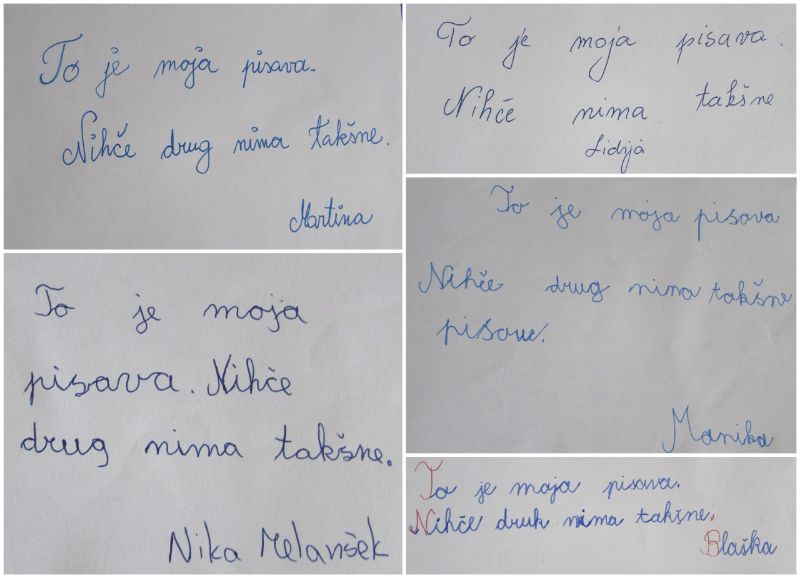 To je moja pisava.
Nihče drug nima takšne.
Martina
To je moja pisava.
Nihče nima takšne
Lidija
To je moja pisava
Nihče drug nima takšne
pisave.
Manika
To je moja
pisava. Nihče
drug nima takšne.
Nika Melanšek
To je moja pisava.
Nihče druk nima takšne.
Blaška